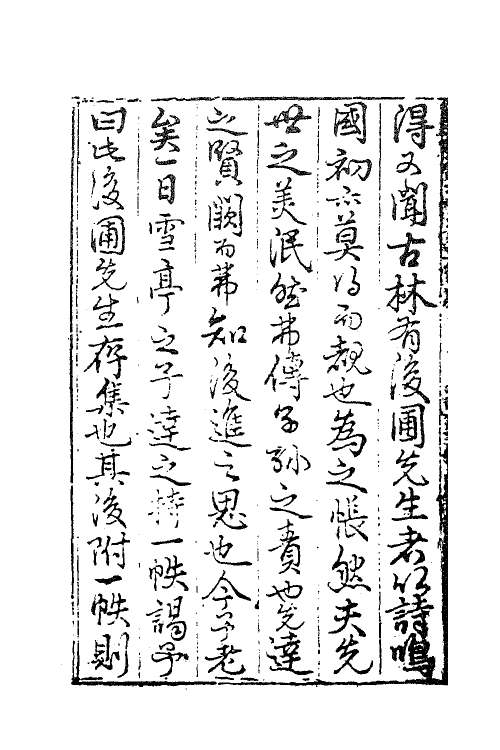 得又聞古林有後圃先生者以詩鳴
國初亦莫得而覩也為之悵然夫先
世之美泯然弗傳子孫之責也先達
之賢闕而弗知後進之恩也今予老
矣一日雪亭之子達之持一帙謁予
曰此後圃先生存集也其後附一帙則